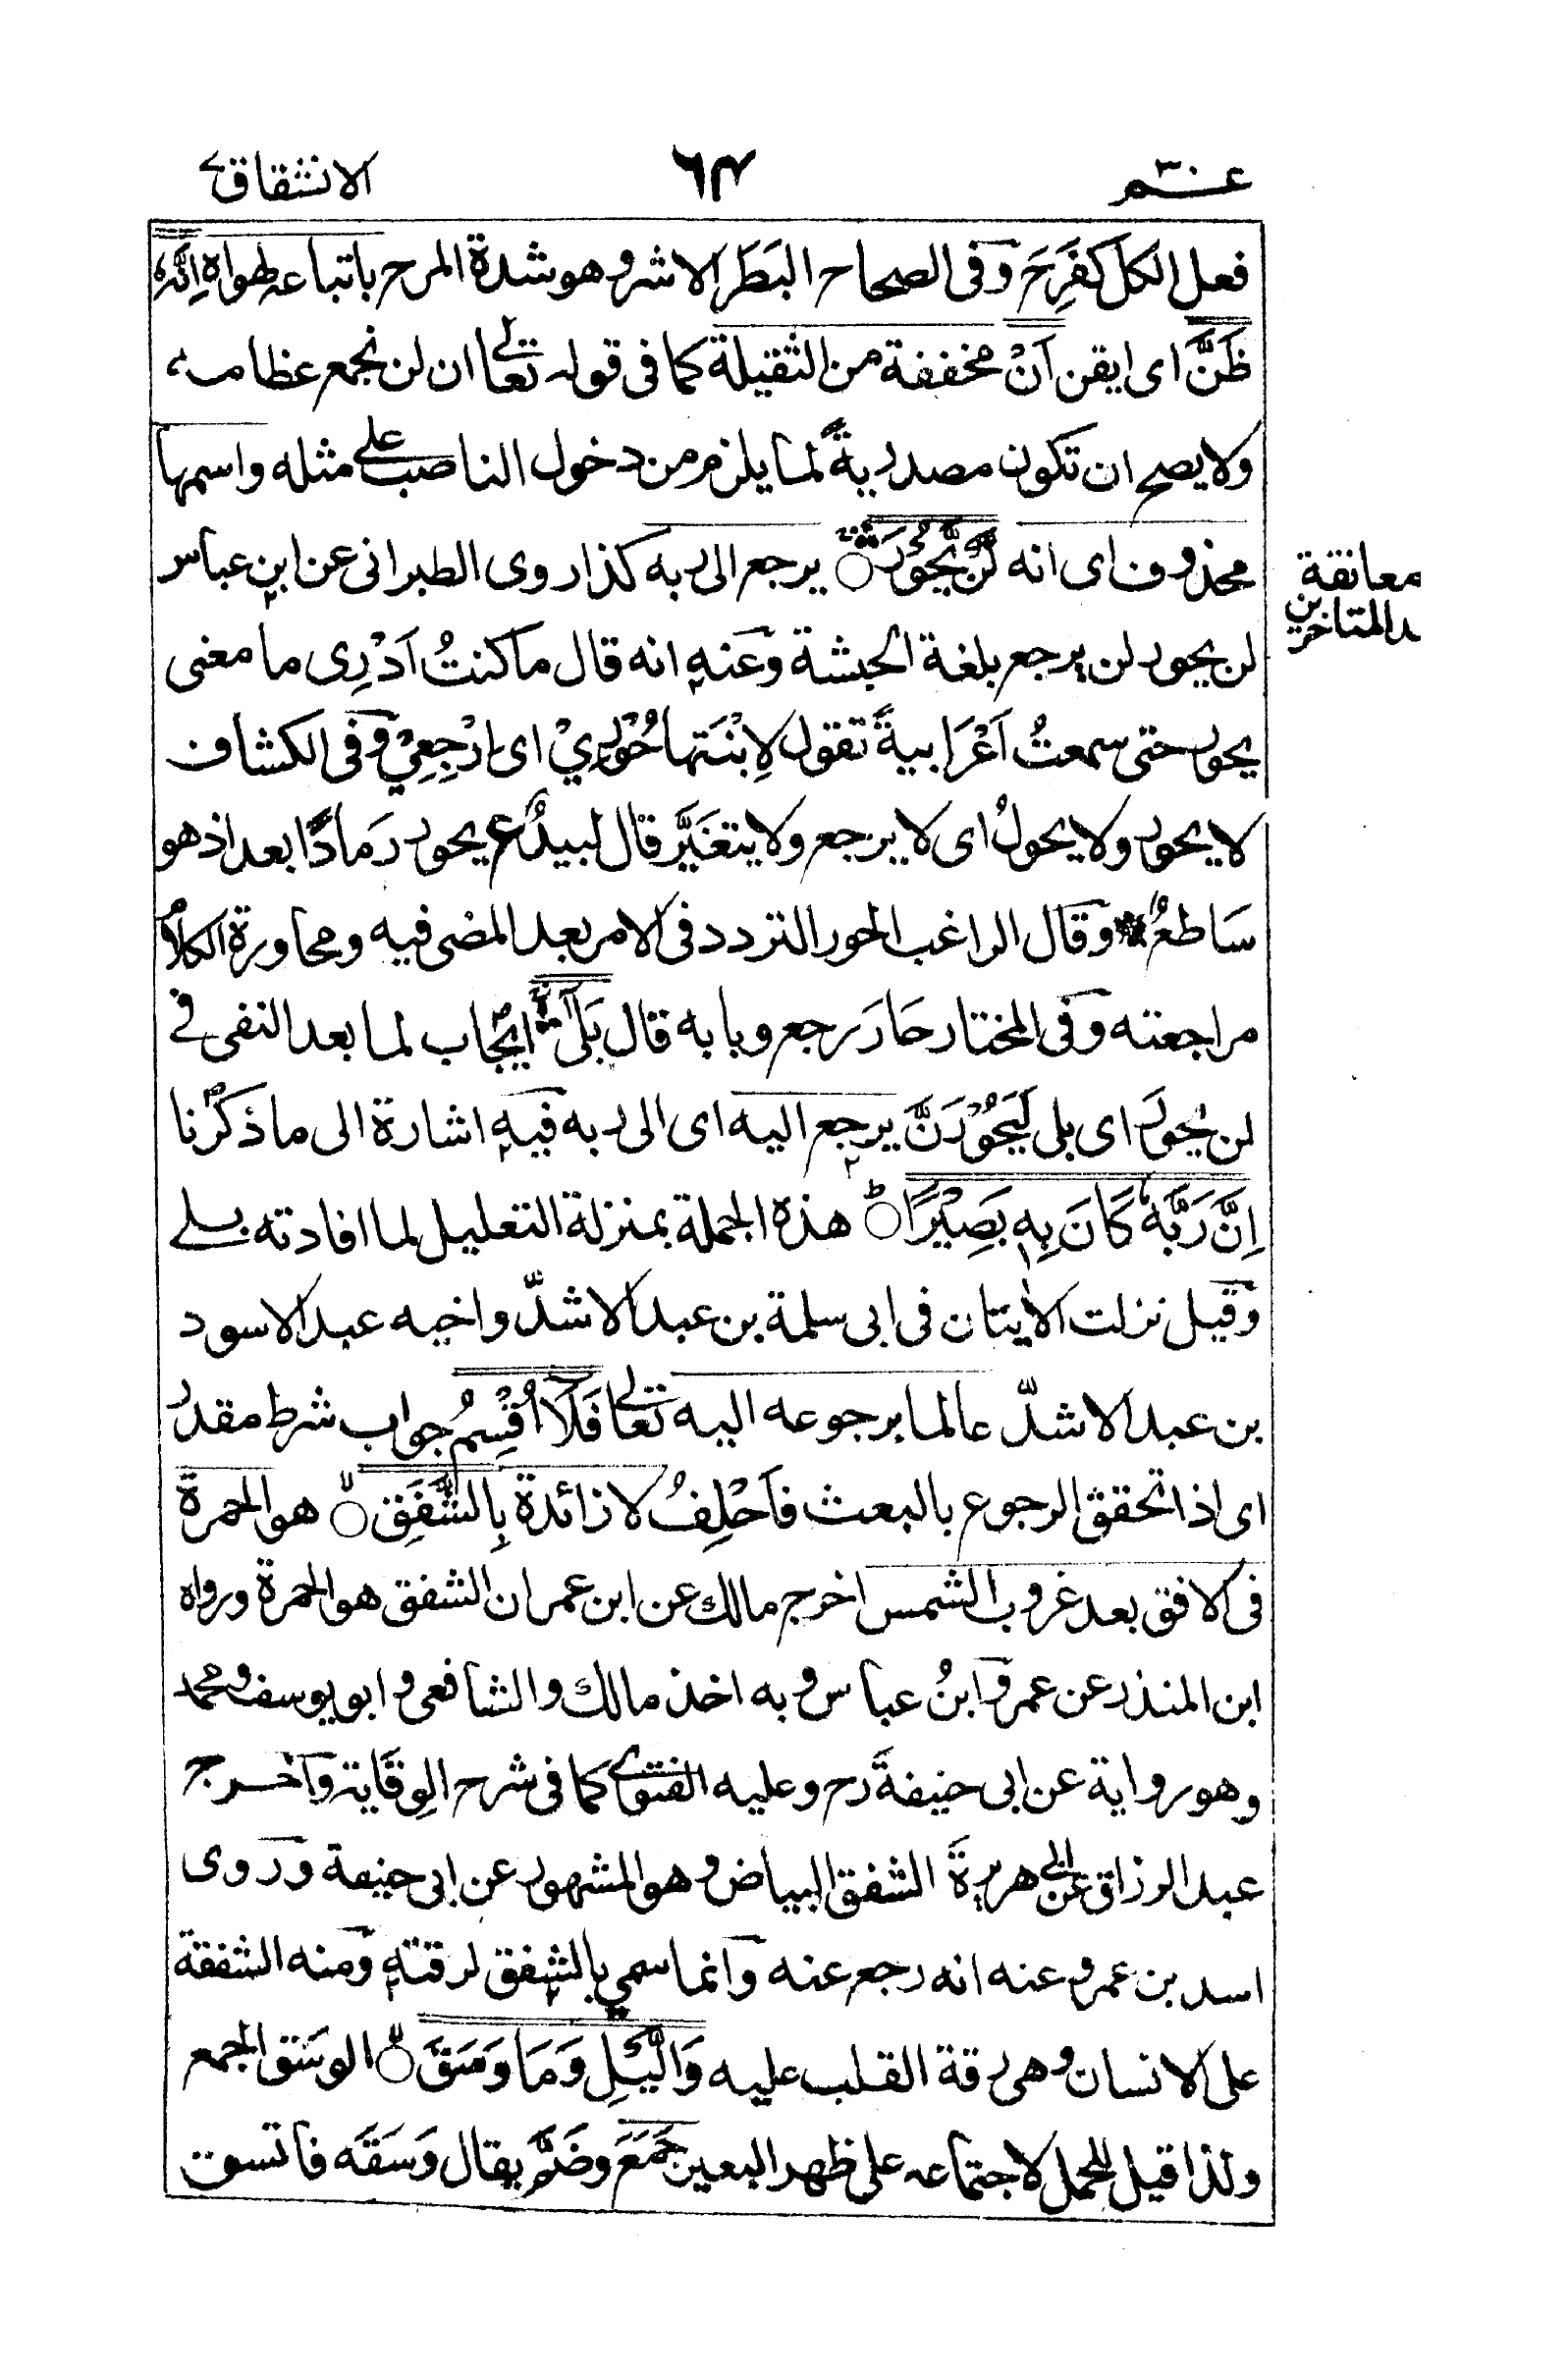 عـم ٣٠
٦٤
الانشقاق
فعل الكل كفَرِحَ وفى الصحاح البَطَر الاشر وهو شدة المرح باتباعه لهواه اِنَّهٗ
ظَنَّ اى ايقن اَنْ مخففة من الثقيلة كما فى قوله تعالى ان لن نجمع عظامه
ولا يصح ان تكون مصدريةً لما يلزم من دخول الناصب على مثله واسمها
محذوف اى انه لَّنْ يَّحُوْرَ ○ يرجع الى ربه كذا روى الطبرانى عن ابن عباس
لن يحور لن يرجع بلغة الحبشة وعنه انه قال ما كنتُ اَدْرِى ما معنى
يحور حتى سمعتُ اَعْرَابيةً تقول لِابْنَتِها حُوْرِيْ اى اِرْجِعِيْ وفى الكشاف
لا يحور ولا يحولُ اى لا يرجع ولا يتغَيَّر قال لبيدٌ ع يحور رَمادًا بعد اذ هو
سَاطعُ وقال الراغب الحور التردد فى الامر بعد المضى فيه ومحاورة الكلام
مراجعته وفى المختار حَارَ رجع وبابه قال بَلٰٓى ايجاب لما بعد النفى فى
لن يحورَ اى بلى لَيَحُوْرَنَّ يرجع اليه اى الى ربه فيه اشارة الى ما ذكرنا
اِنَّ رَبَّهٗ كَانَ بِهٖ بَصِيْرًا ○ هذه الجملة بمنزلة التعليل لما افادته بلى
وقيل نزلت الايتان فى ابى سلمة بن عبد الاشدّ واخيه عبد الاسود
بن عبد الاشدّ عالما برجوعه اليه تعالى فَلَآ اُقْسِمُ جواب شرط مقدر
اى اذا تحقق الرجوع بالبعث فاَحْلِفُ لا زائدة بِالشَّفَقِ ○ هو الحمرة
فى الافق بعد غروب الشمس اخرج مالك عن ابن عمر ان الشفق هو الحمرة ورواه
ابن المنذر عن عمر وابنُ عباس وبه اخذ مالك والشافعى وابو يوسف ومحمد
وهو رواية عن ابى حنيفةَ رح وعليه الفتوى كما فى شرح الوِقَاية واخرج
عبد الرزاق عن ابى هريرةَ الشفق البياض وهو المشهور عن ابى حنيفة وروى
اسد بن عمرو عنه انه رجع عنه وانما سمي بالشفق لرقته ومنه الشفقة
على الانسان وهى رقة القلب عليه وَالَّيْلِ وَمَا وَسَقَ ○ الوسَق الجمع
ولذا قيل للحمل لاجتماعه على ظهر البعير جَمَعَ وضَمَّ يقال وَسَقَه فاتسق
معانقة
عند المتاخرين